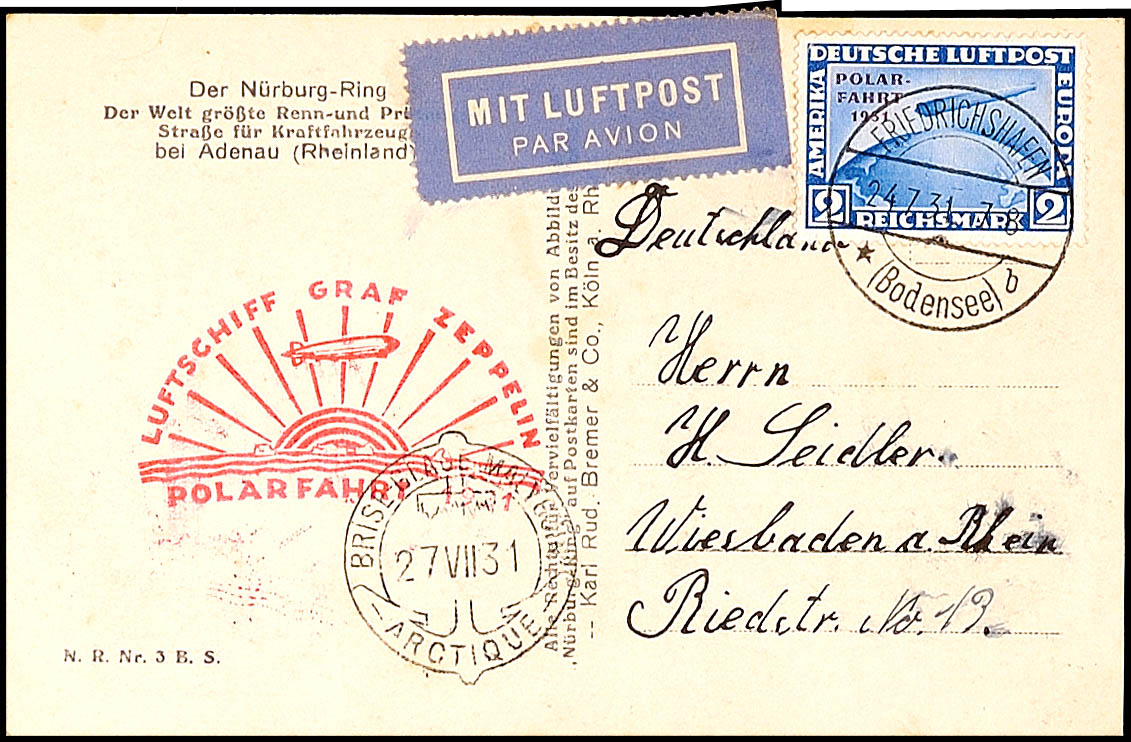 Der Nürburg-Ring
Der Welt größte Renn-und
Straße für Kraftfahrzeug
bei Adenau (Rheinland)
MIT LUFTPOST
PAR AVION
DEUTSCHE LUFTPOST
AMERIKA
EUROPA
POLAR-
FAHRT
1931
2 REICHSMARK 2
FRIEDRICHSHAFEN
24.7.31. 7-8
(Bodensee) b
LUFTSCHIFF GRAF ZEPPELIN
POLARFAHRT 1931
BRISE GLACE
27 VII 31
ARCTIQUE
Alle Rechte für Vervielfältigungen von
„Nürburg-Ring“ auf Postkarten sind im Besitz des
-- Karl Rud. Bremer & Co., Köln a. Rh
Deutschland
Herrn
H. Seidler.
Wiesbaden a. Rhein
Riedstr. No. 13.
N. R. Nr. 3 B. S.